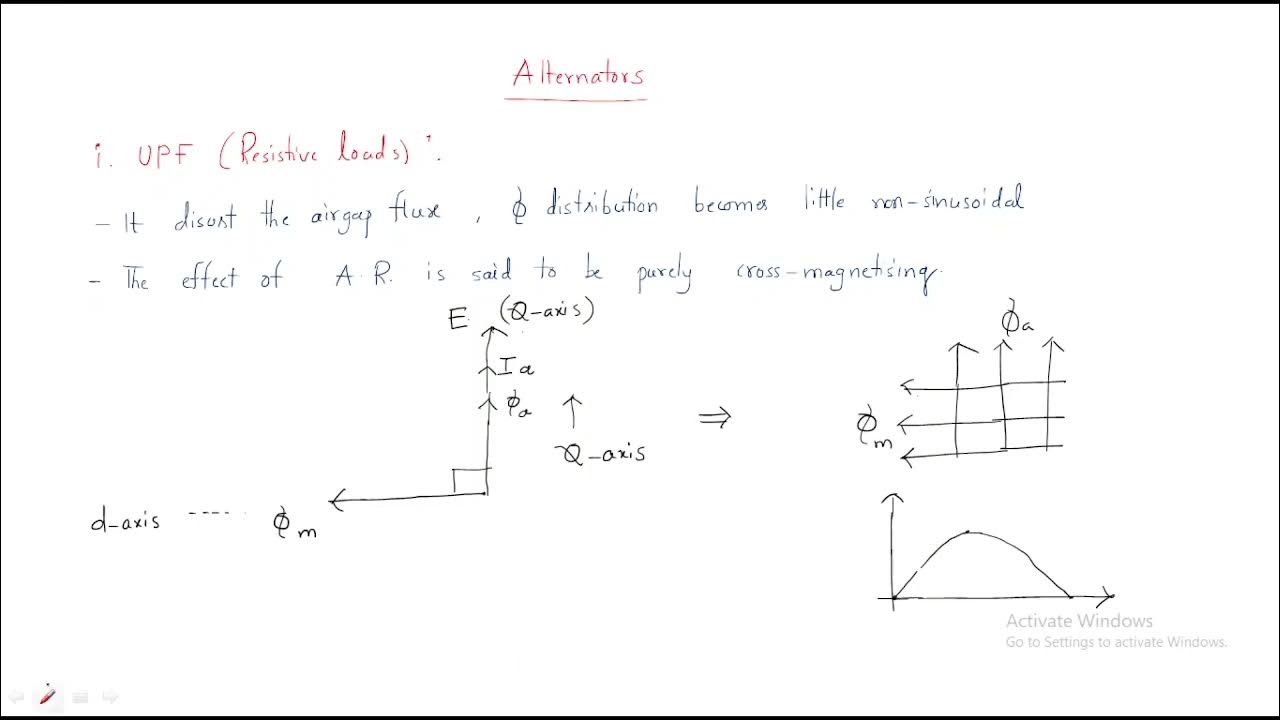 Alternators
i. UPF (Resistive loads) :
- It disort the airgap flux, ϕ distribution becomes little non-sinusoidal
- The effect of A.R. is said to be purely cross-magnetising.
E (Q-axis)
Ia
ϕa
Q-axis
⇒
ϕa
ϕm
d-axis ---- ϕm
Activate Windows
Go to Settings to activate Windows.